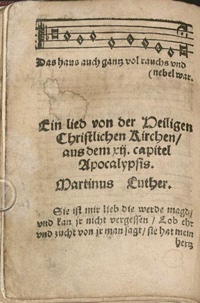 Das haus auch gantz vol rauchs vnd
nebel war.
Ein lied von der Heiligen
Christlichen Kirchen/
aus dem xij. capitel
Apocalypsis.
Martinus Luther.
Sie ist mir lieb die werde magd/
vnd kan jr nicht vergessen / Lob ehr
vnd zucht von jr man sagt/ sie hat mein
hertz